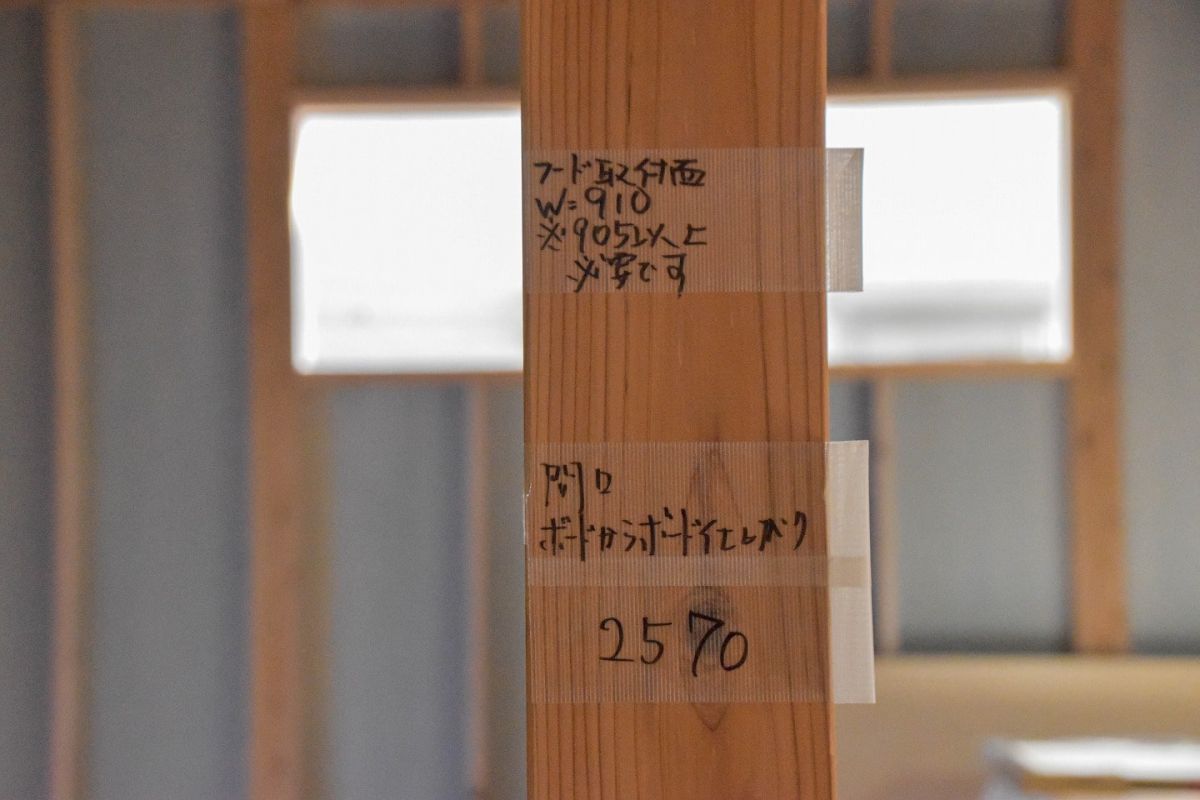 フード取付面
W=910
※905以上
必要です
間口
ボードからボード仕上がり
2570